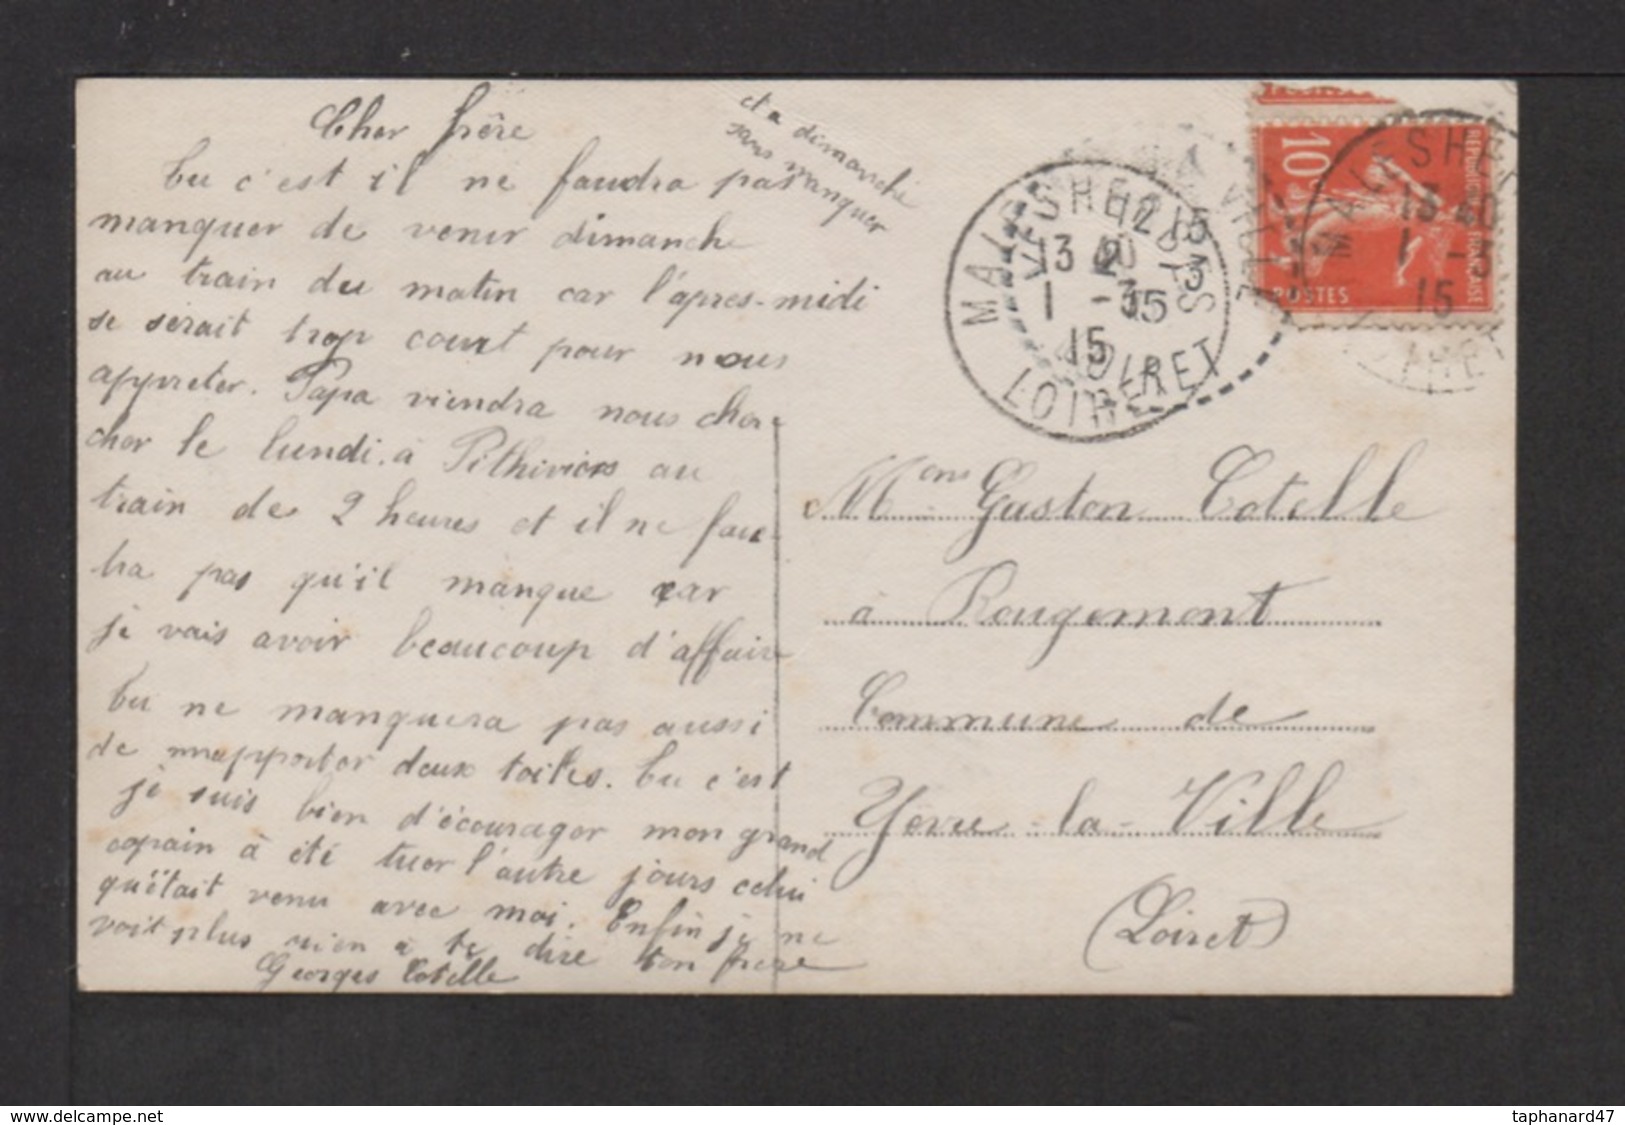 Cher frère
tu c'est il ne faudra pas
manquer de venir dimanche
au train du matin car l'apres-midi
se serait trop court pour nous
appreter. Papa viendra nous cher
cher le lundi. à Pithiviers au
train de 2 heures et il ne fau-
dra pas qu'il manque car
je vais avoir beaucoup d'affaire
tu ne manquera pas aussi
de m'apporter deux toiles. tu c'est
je suis bien d'écourager mon grand
copain à été tuer l'autre jours celui
qu'était venu avec moi. Enfin je ne
voit plus rien à te dire ton frere
Georges Cotelle
et a dimanche
sans manquer
MALESHERBES
13 40
1 -3
15
LOIRET
12 15
2 -3
15
LOIRET
MALESHERBES
13 40
1 -3
15
LOIRET
10
REPUBLIQUE FRANÇAISE
POSTES
Mons Gaston Cotelle
à Rougemont
Commune de
Yevre-la-Ville
(Loiret)
www.delcampe.net
taphanard47